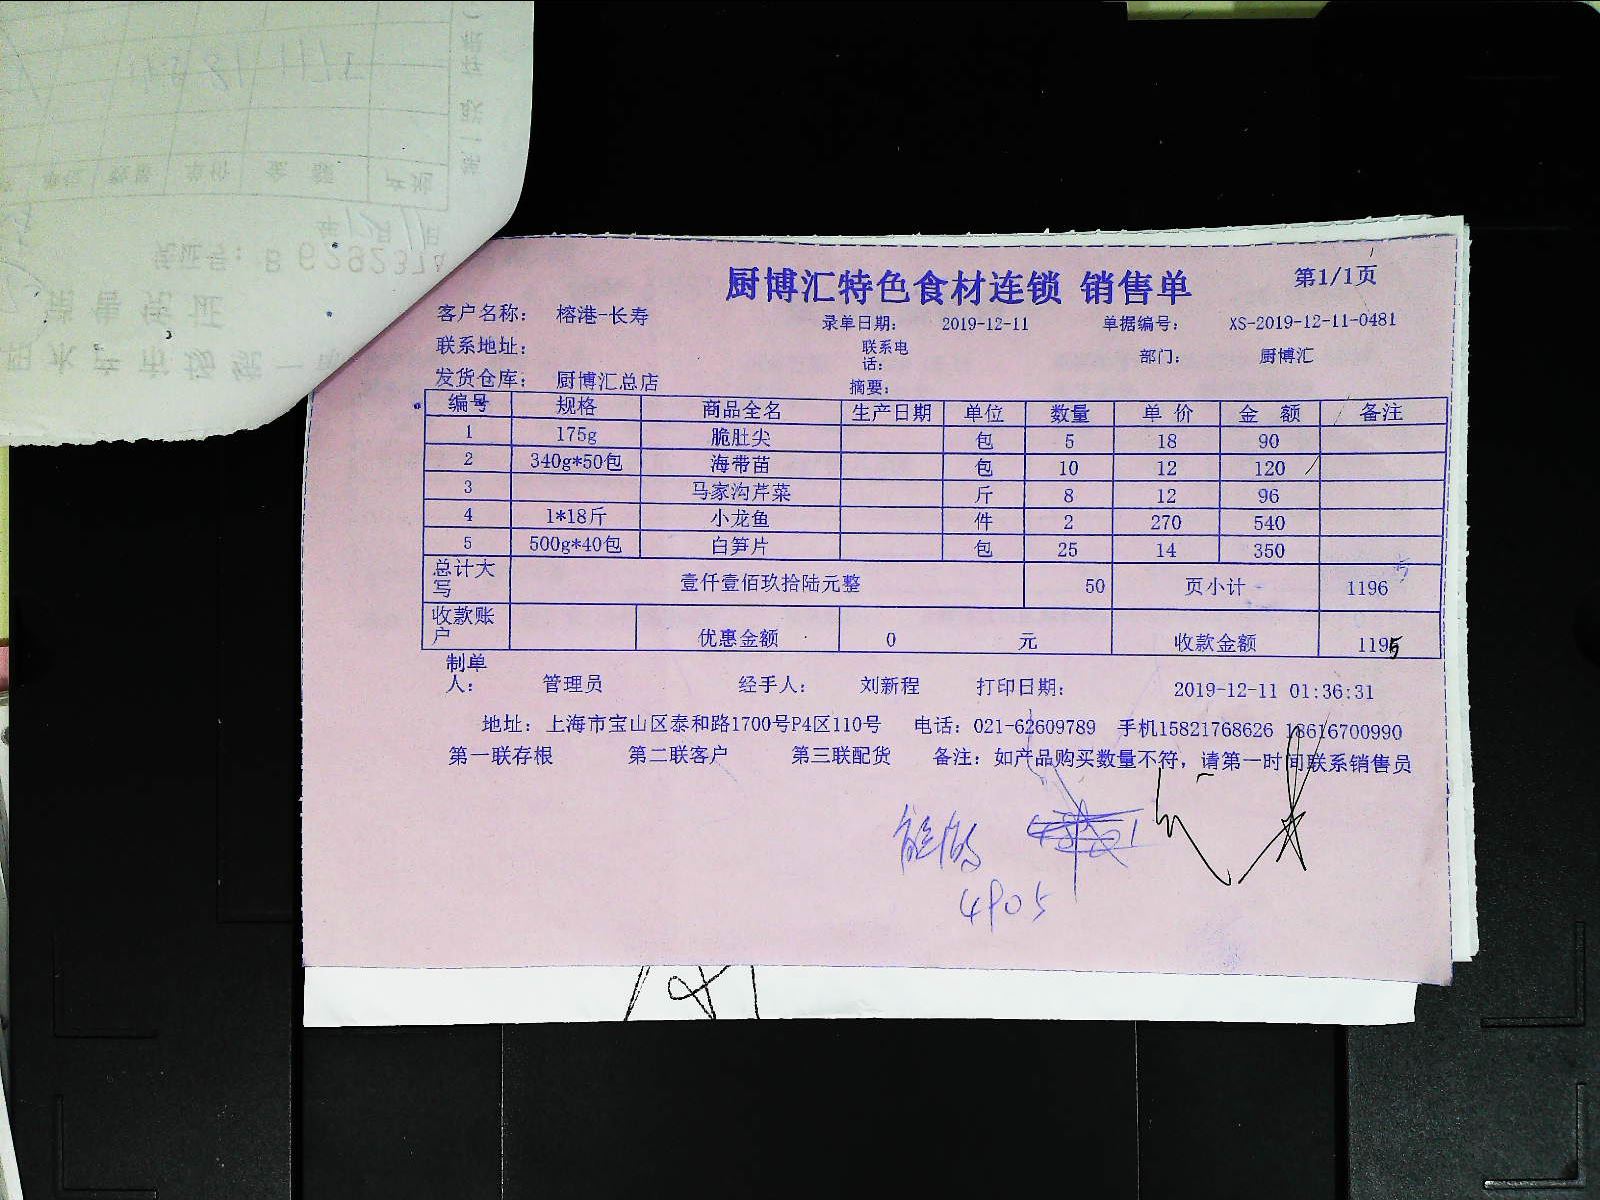 厨博汇特色食材连锁 销售单 第1/1页
客户名称： 榕港-长寿 录单日期： 2019-12-11 单据编号： XS-2019-12-11-0481
联系地址： 联系电话： 部门： 厨博汇
发货仓库： 厨博汇总店 摘要：
编号 规格 商品全名 生产日期 单位 数量 单 价 金 额 备注
1 175g 脆肚尖 包 5 18 90
2 340g*50包 海带苗 包 10 12 120
3 马家沟芹菜 斤 8 12 96
4 1*18斤 小龙鱼 件 2 270 540
5 500g*40包 白笋片 包 25 14 350
总计大写 壹仟壹佰玖拾陆元整 50 页小计 1196
收款账户 优惠金额 0 元 收款金额 1195
制单人： 管理员 经手人： 刘新程 打印日期： 2019-12-11 01:36:31
地址：上海市宝山区泰和路1700号P4区110号 电话：021-62609789 手机15821768626 18616700990
第一联存根 第二联客户 第三联配货 备注：如产品购买数量不符，请第一时间联系销售员
4905